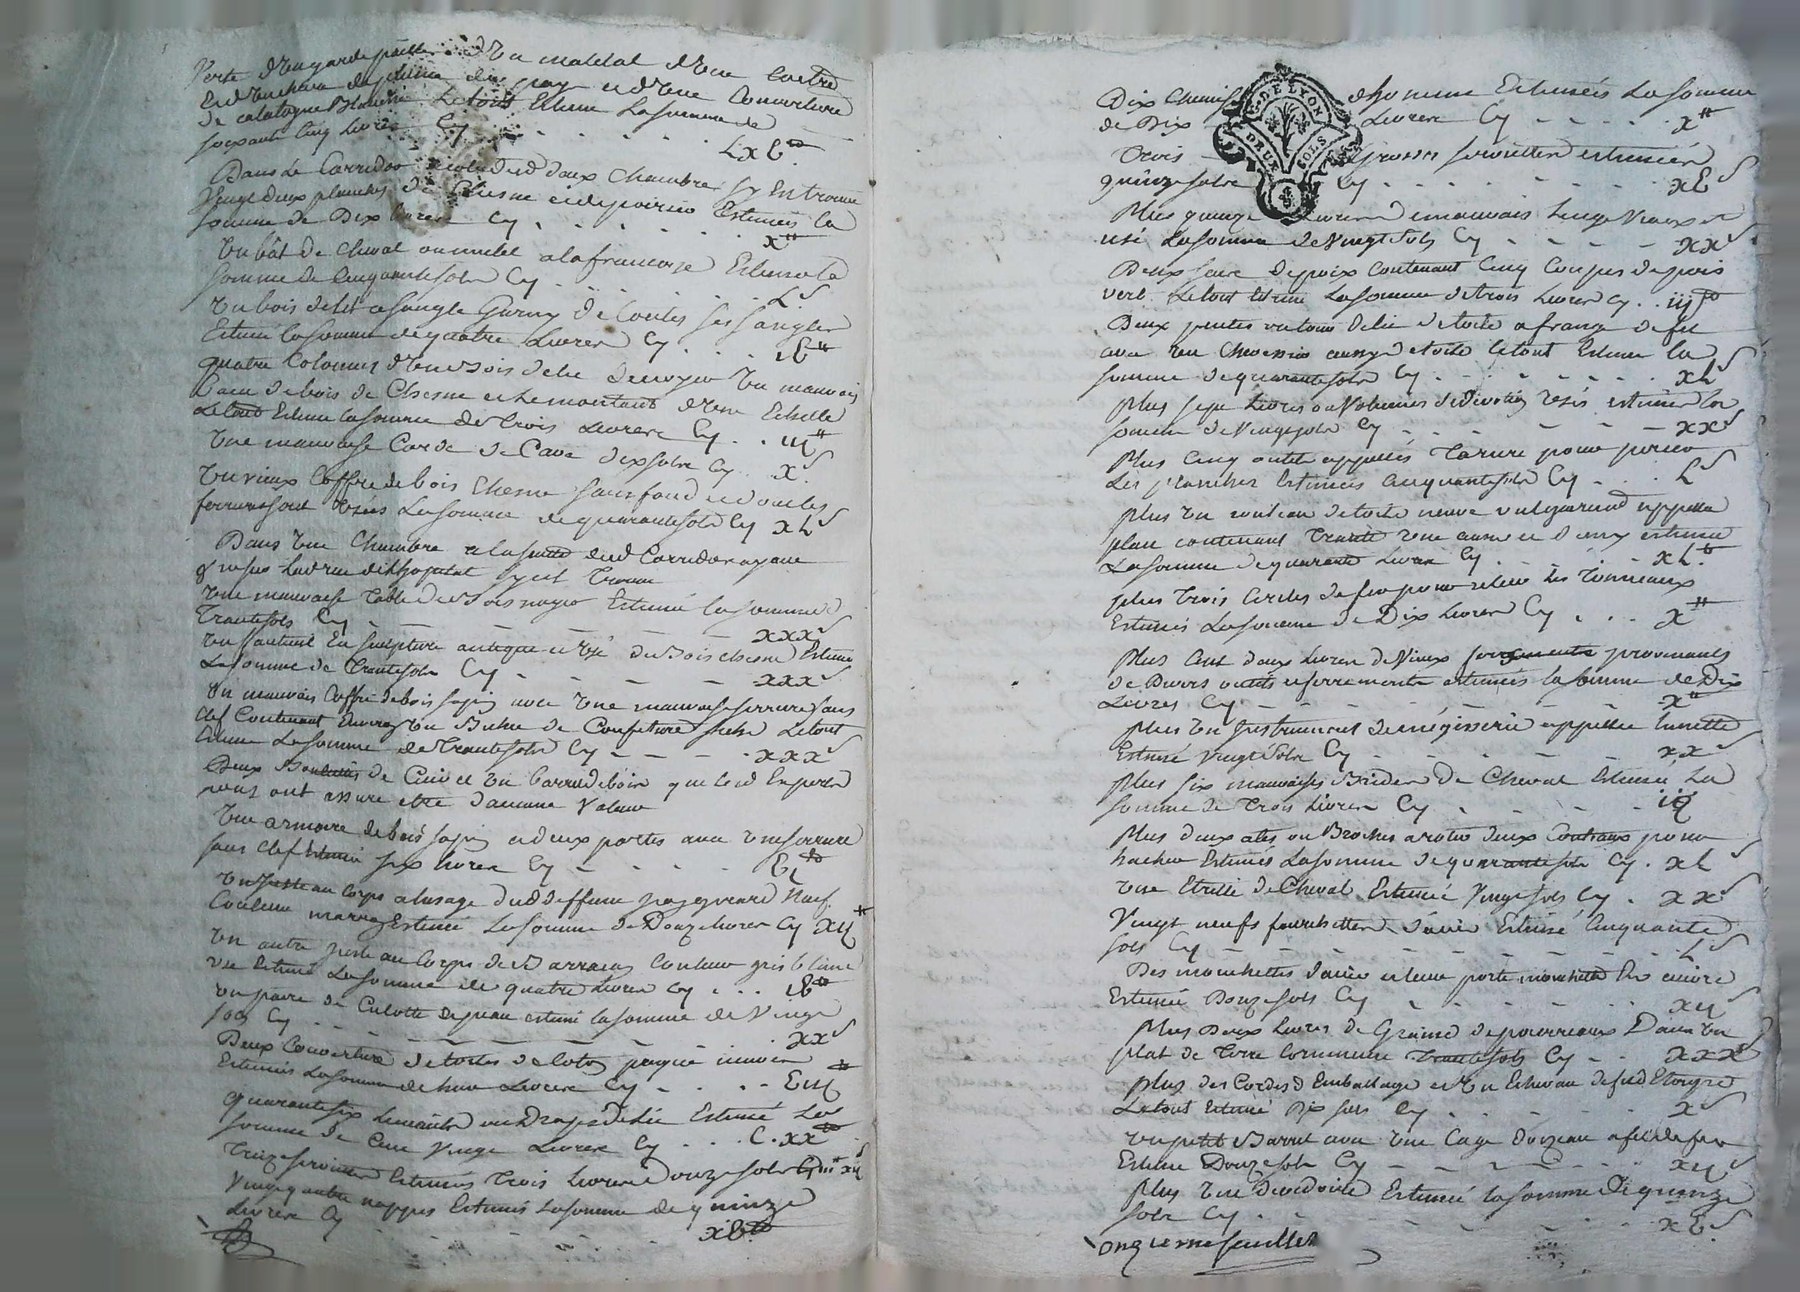 verte d'un garde paille d'un matelat d'une Coutre
et d'un chevet de plume du pay et d'une Couverture
de catalogne blanche Letout Estimé Lasomme de
soixante Cinq Livres Cy - - - - LxV ₶
Dans le Corridor a coté desd deux chambres sy En trouve
Vingt deux planches de Chesne et de poirier Estimées la
somme de Dix Livres Cy - - - - x ₶
Un bât de cheval ou mulet alafrancoise Estimé la
somme de Cinquante sols Cy - - - - L s
Un bois de lit a sangle Garny de toiles ses sangles
Estimé la somme de quatre Livres Cy - - - iv ₶
quatre Colonnes d'un bois de lit de noyer Un mauvais
banc de bois de Chesne et le montant d'une Echelle
Letout Estimé la somme de Trois Livres Cy - - iij ₶
Une mauvaise Corde de Cave dix sols Cy - x s
Un vieux Coffre de bois Chesne sans fond et dont les
ferrures sont Usées La somme de quarante sols Cy xL s
Dans Une Chambre a la suitte dud Corridor ayant
Une mauvaise Table de bois noyer Estimé la somme de
Trente sols Cy - - - - xxx s
Un fauteuil En sculpture antique et Usé du bois chesne Estimé
La somme de Trente sols Cy - - - - xxx s
Un mauvais Coffre de bois sapin avec Une mauvaise serrure sans
clef Contenant Environ Un Buche de Confiture seche Letout
Estimé La somme de Trente sols Cy - - - - xxx s
Deux de Cuir et Un barril de bois que lesd Experts
nous ont assuré etre d'aucune Valeur
Une armoire de bois sapin a deux portes avec Une serrure
sans clef Estimée six livres Cy - - - - Vj ₶
Un juste au corps alusage dud deffunt pas quinard Neuf
Couleur maron Estimé La somme de Douze livres Cy xij ₶
Un autre juste au Corps de Barracan Couleur gris blanc
usé Estimé La somme de quatre livres Cy - - - iv ₶
Un paire de Culotte de peau estimé la somme de Vingt
sols Cy - - - - xx s
Deux Couvertures de toiles de Coton piquée
Estimées La somme de huit Livres Cy - - - - Viij ₶
quarante six Linceuls ou Draps de lit Estimé La
somme de Cent Vingt Livres Cy - - - C.xx ₶
Treize serviettes Estimées Trois livres Douze sols Cy iij ₶ xij s
Vingt quatre nappes Estimées La somme de quinze
Livres Cy - - - - xV ₶
Dix Chemises d'homme Estimées La somme
de Dix Livres Cy - - - - x ₶
Trois Grosses serviettes estimées
quinze sols Cy - - - - xV s
Plus quinze mauvais linge Vieux et
usé La somme de Vingt sols Cy - - - - xx s
Deux sacs de poix Contenant Cinq Coupes de pois
vert Letout Estimé La somme de trois Livres Cy - - iij ₶
Deux pentes rideau de lit de toile a frange de fil
avec un Chevessier aussy de toile letout Estimé la
somme de quarante sols Cy - - - - xL s
plus sept Livres ou Volumes de devotion Usés estimés la
somme de Vingt sols Cy - - - - xx s
Plus Cinq outils appellés Tarure pour percer
Les planches Estimées Cinquante sols Cy - - - L s
plus Un rouleau de toile neuve vulgairement appellé
plan contenant Trente Une aune et demy estimé
La somme de quarante Livres Cy - - - xL ₶
plus Trois Cercles de fer pour relier les Tonneaux
Estimés La somme de Dix Livres Cy - - - x ₶
Plus Cent deux Livres de Vieux ferrements provenants
de Divers outils et ferrements estimées la somme de Dix
Livres Cy - - - - x ₶
plus Un Instrument de mégisserie appellée Lunette
Estimé Vingt Sols Cy - - - - xx s
Plus six mauvaises Brides de Cheval Estimé La
somme de Trois Livres Cy - - - - iij ₶
Plus deux ates ou Broches a rotir deux Couteaux pour
hacher Estimés La somme de quarante sols Cy - xL s
Une Etrille de Cheval Estimée Vingt sols Cy - xx s
Vingt neufs fourchettes d'acier Estimé Cinquante
sols Cy - - - - L s
Des mouchettes d'acier et leur porte mouchette En cuivre
Estimée Douze sols Cy - - - - xij s
Plus Deux Livres de Graine de pourreaux Dans Un
plat de Terre Commune Trente sols Cy - - xxx s
plus des Cordes d'Emballage et Un Echevau de fil d'Etoupe
Letout Estimé Dix sols Cy - - - - x s
Un petit Barril avec Une Cage d'oiseau a fil de fer
Estimé Douze sols Cy - - - - xij s
Plus Une Devidoire Estimée la somme De quinze
sols Cy - - - - xV s
onzieme feuillet
G. DE LYON
DEUX SOLS